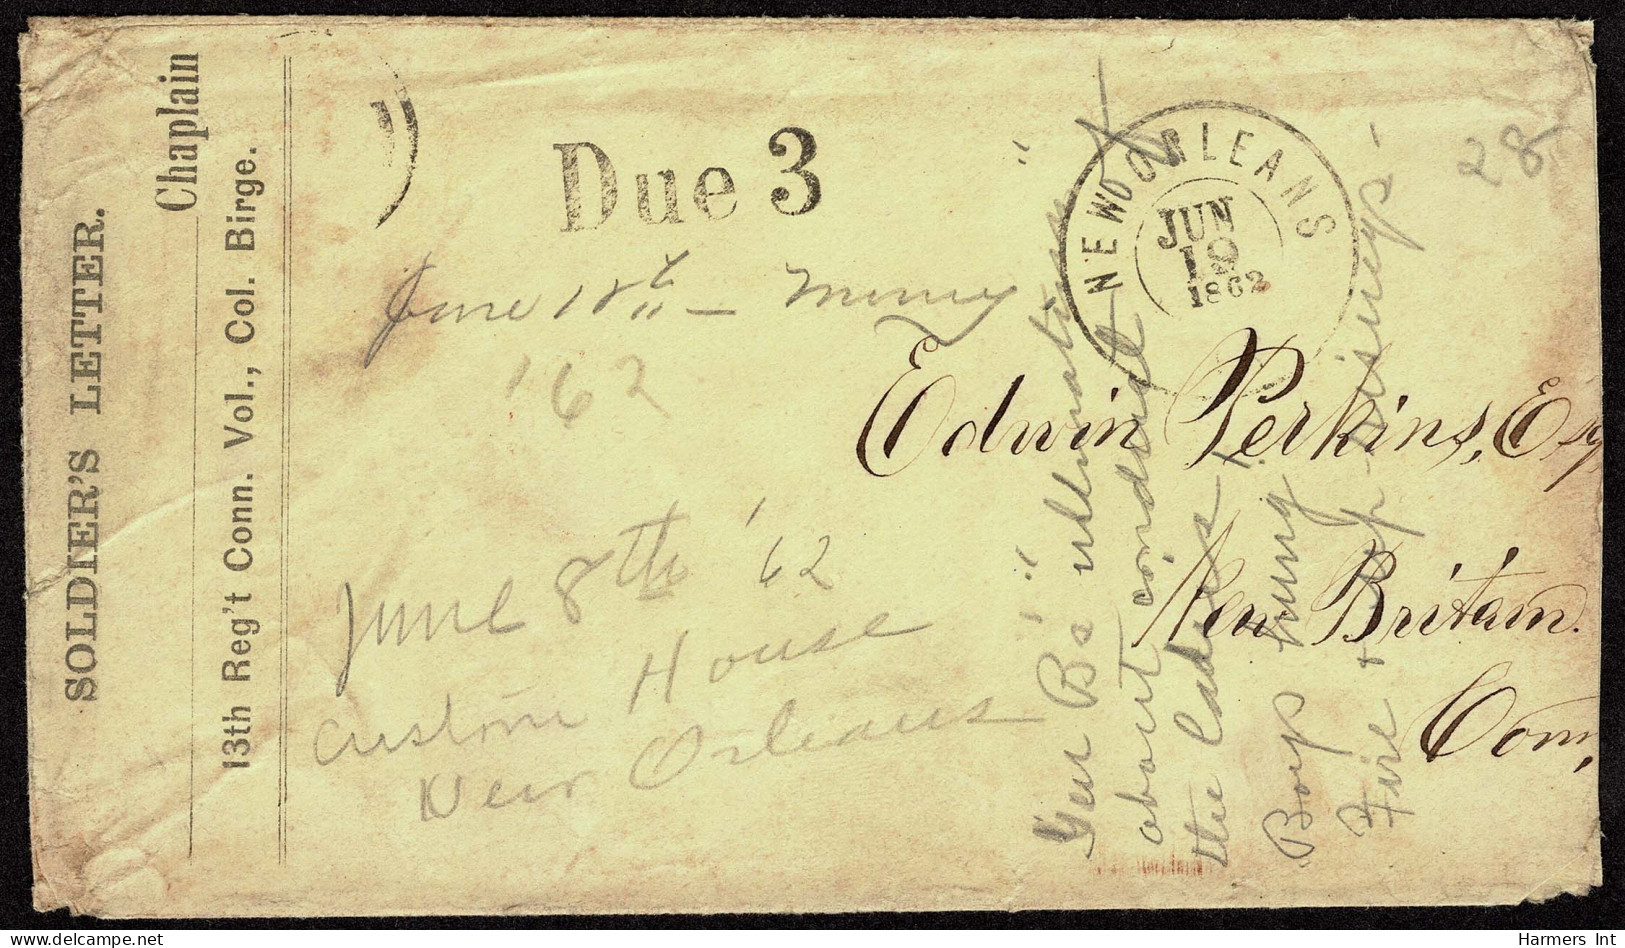 SOLDIER'S LETTER.
Chaplain
13th Reg't Conn. Vol., Col. Birge.
Due 3
NEW ORLEANS
JUN
19
1862
28
June 18th — Money
'62
Edwin Perkins, Esq
New Britain.
Conn,
June 8th '62
Custom House
New Orleans
"Gen B's" ultimatum"
about conduct of
the Ladies!
Boys hung!
Fire
Harmers Int